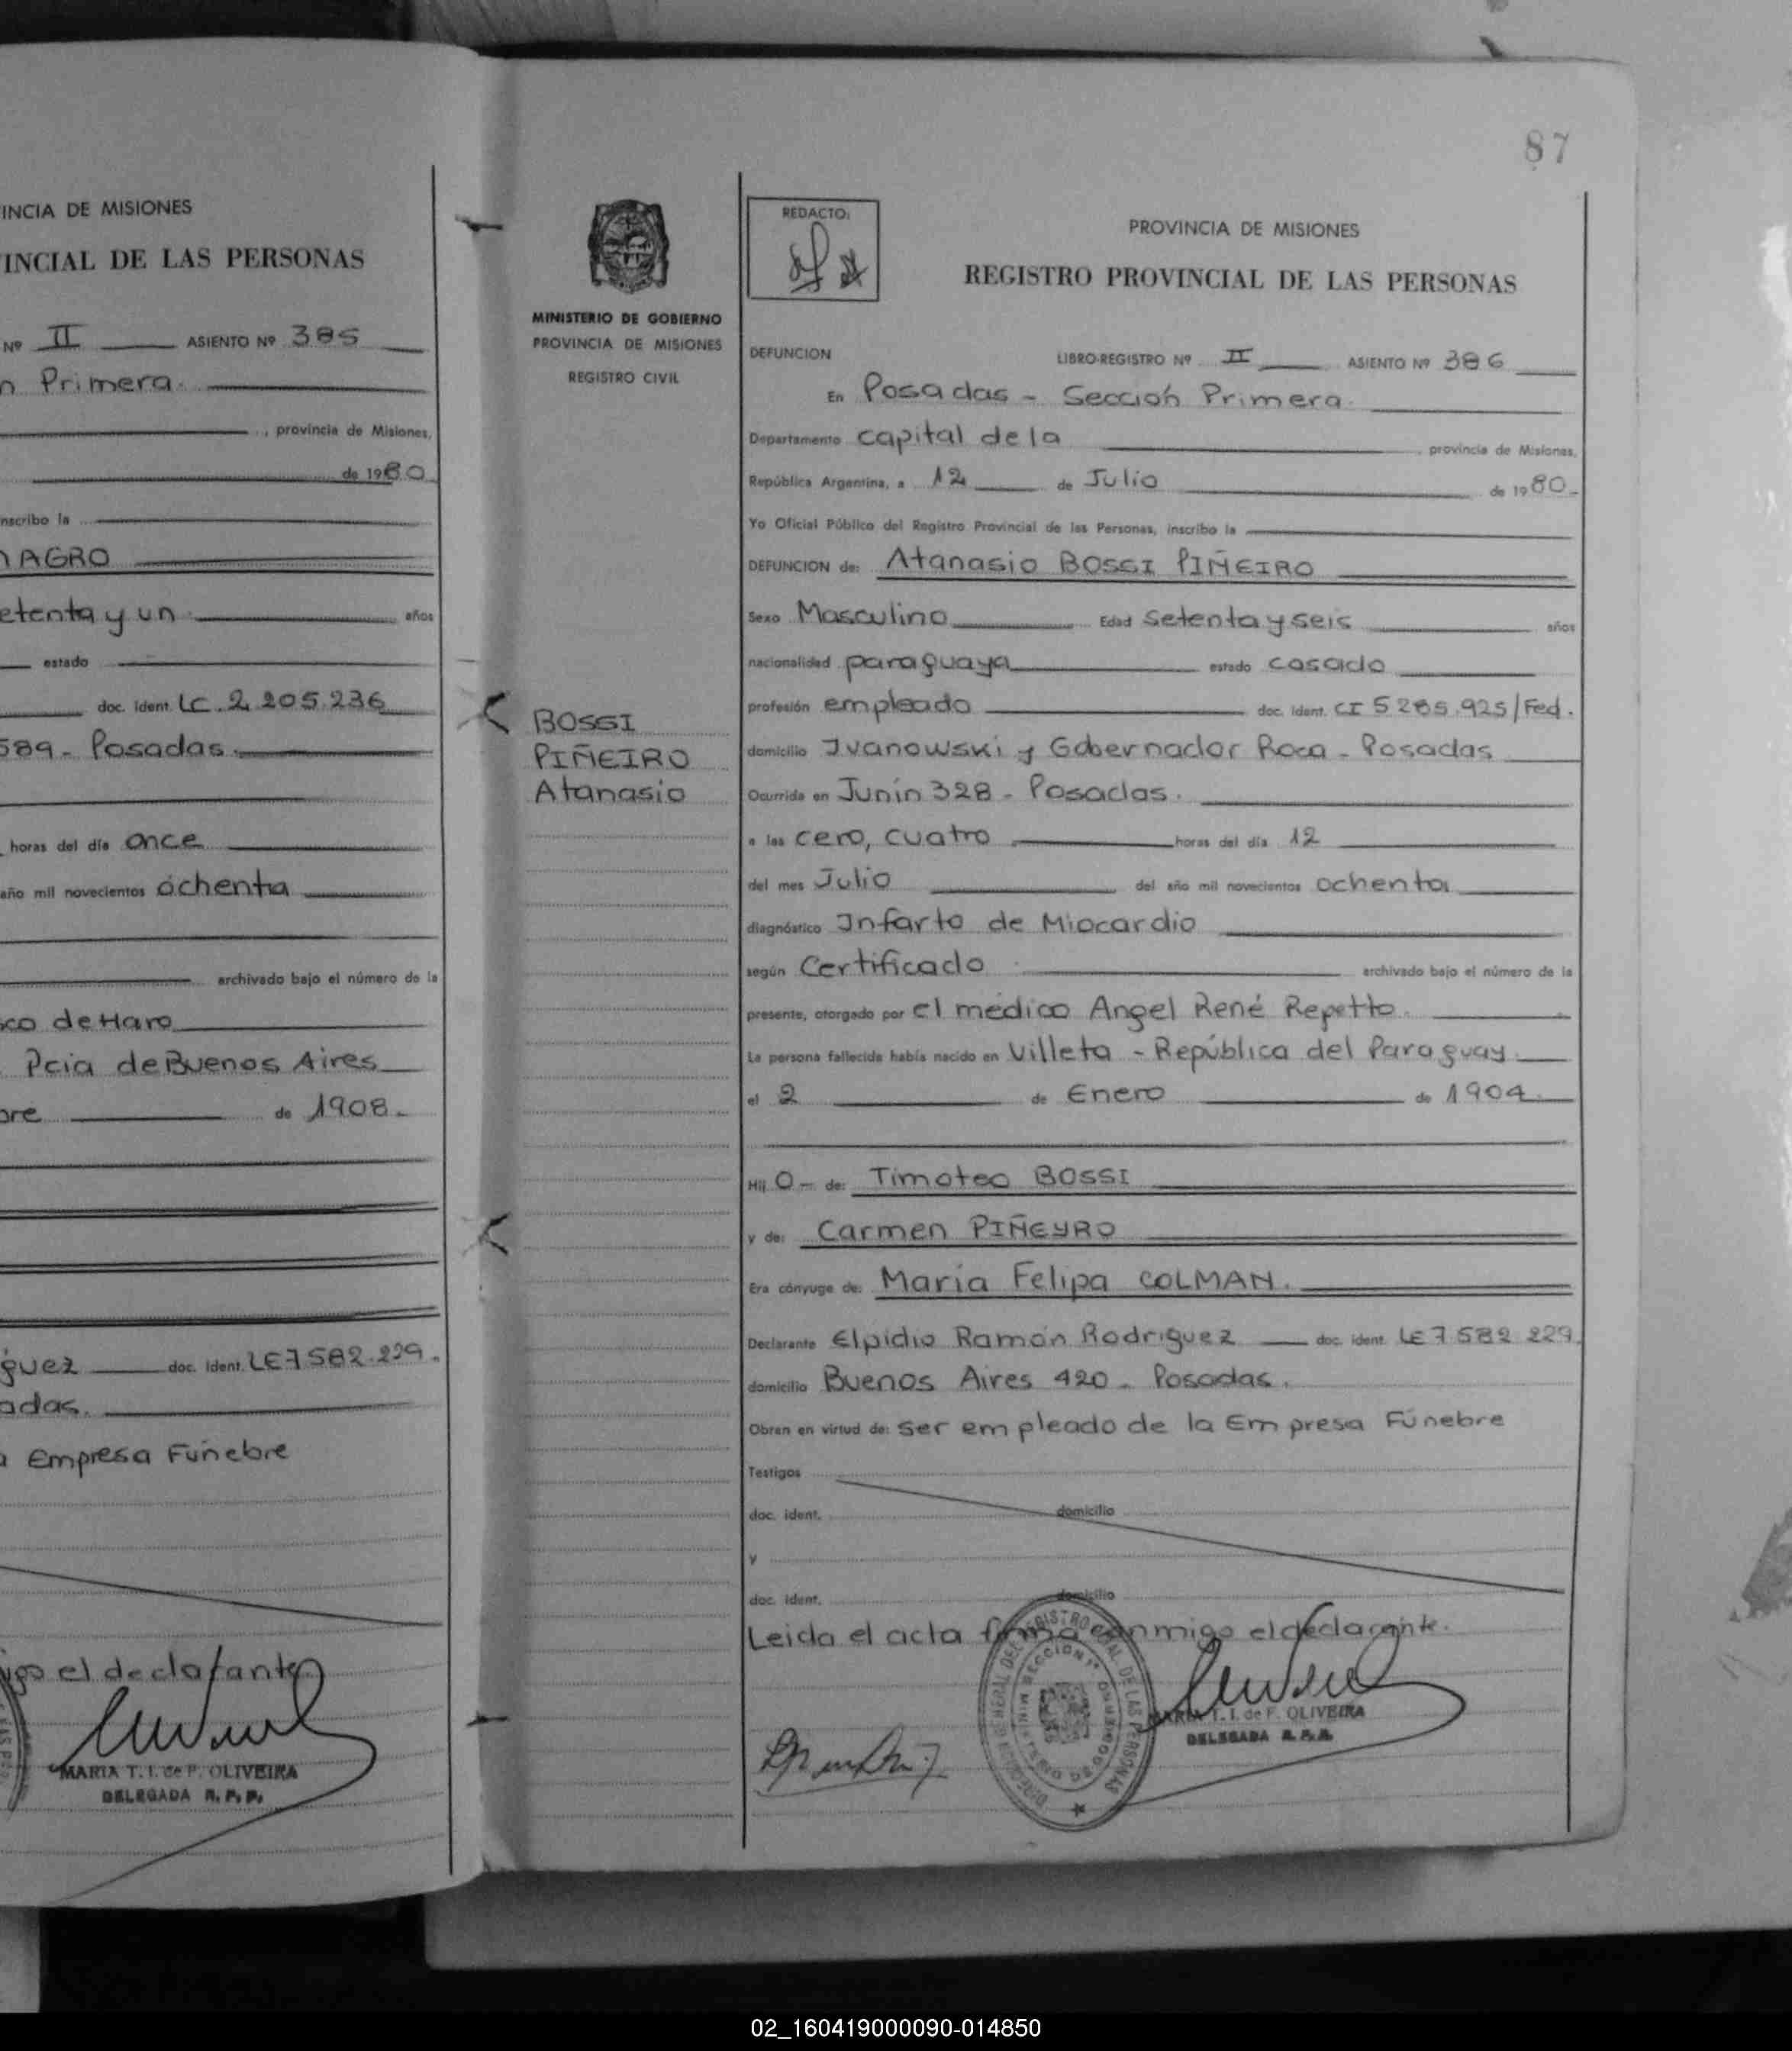 INCIA DE MISIONES
INCIAL DE LAS PERSONAS
Nº II ASIENTO Nº 385
n Primera.
, provincia de Misiones,
de 1980
nscribo la
MAGRO
etenta y un años
estado
doc. ident. LC. 2.205.236
589 - Posadas.
horas del día once
año mil novecientos ochenta
archivado bajo el número de la
sco de Haro
Pcia de Buenos Aires
bre de 1908.
guez doc. ident. LE 7 582.229.
adas.
a Empresa Fúnebre
igo el declarante.
MARIA T. I. de F. OLIVEIRA
DELEGADA R. P. P.
87
MINISTERIO DE GOBIERNO
PROVINCIA DE MISIONES
REGISTRO CIVIL
BOSSI
PIÑEIRO
Atanasio
REDACTO:
PROVINCIA DE MISIONES
REGISTRO PROVINCIAL DE LAS PERSONAS
DEFUNCION LIBRO-REGISTRO Nº II ASIENTO Nº 386
En Posadas - Sección Primera.
Departamento capital de la , provincia de Misiones,
República Argentina, a 12 de Julio de 1980.
Yo Oficial Público del Registro Provincial de las Personas, inscribo la
DEFUNCION de: Atanasio BOSSI PIÑEIRO
Sexo Masculino Edad setenta y seis años
nacionalidad paraguaya estado casado
profesión empleado doc. ident. CI 5 285.925/Fed.
domicilio Ivanowski y Gobernador Roca - Posadas
Ocurrida en Junín 328 - Posadas.
a las cero, cuatro horas del día 12
del mes Julio del año mil novecientos ochenta
diagnóstico Infarto de Miocardio
según Certificado archivado bajo el número de la
presente, otorgado por el médico Angel René Repetto.
La persona fallecida había nacido en Villeta - República del Paraguay.
el 2 de Enero de 1904.
Hij O- de: Timoteo BOSSI
y de: Carmen PIÑEYRO
Era cónyuge de: María Felipa COLMAN.
Declarante Elpidio Ramón Rodriguez doc. ident. LE 7 582 229.
domicilio Buenos Aires 420 - Posadas.
Obran en virtud de: ser empleado de la Empresa Fúnebre
Testigos
doc. ident. domicilio
y
doc. ident. domicilio
Leida el acta firma conmigo el declarante.
MARIA T. I. de F. OLIVEIRA
DELEGADA R. P. P.
02_160419000090-014850